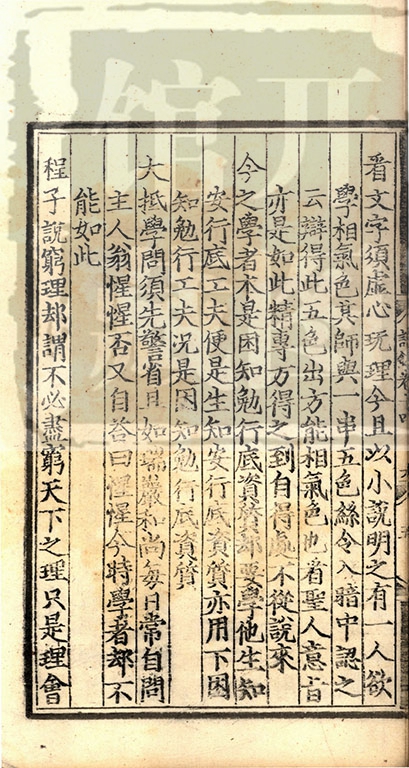 看文字須虛心玩理今且以小說明之有一人欲
學相氣色其師與一串五色絲令入暗中認之
云辯得此五色出方能相氣色也看聖人意旨
亦是如此精專方得之到自得處不從說來
今之學者本是困知勉行底資質却要學他生知
安行底工夫便是生知安行底資質亦用下困
知勉行工夫況是困知勉行底資質
大抵學問須先警省且如瑞巖和尚每日常自問
主人翁惺惺否又自答曰惺惺今時學者却不
能如此
程子說窮理却謂不必盡窮天下之理只是理會